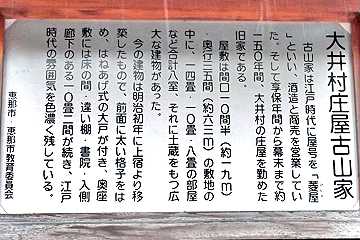 大井村庄屋古山家
古山家は江戸時代に屋号を「菱屋
」といい、酒造と商売を営業してい
た。そして享保年間から幕末まで約
一五〇年間、大井村の庄屋を勤めた
旧家である。
屋敷は間口一〇間半（約一九ｍ）
・奥行三五間（約六三ｍ）の敷地の
中に、一四畳・一〇畳・八畳の部屋
など合計八室、それに土蔵をもつ広
大な建物があった。
今の建物は明治初年に上宿より移
築したもので、前面に太い格子をは
め、はねあげ式の大戸が付き、奥座
敷には床の間・違い棚・書院、入側
廊下のある一〇畳二間が続き、江戸
時代の雰囲気を色濃く残している。
恵那市・恵那市教育委員会